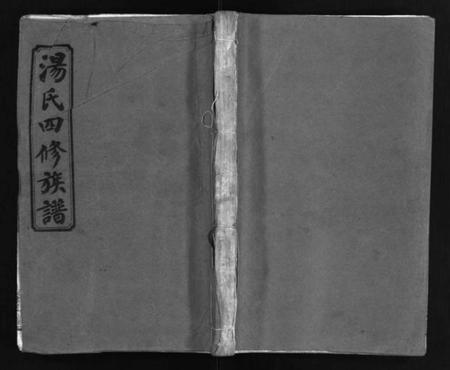 湯氏四修族譜